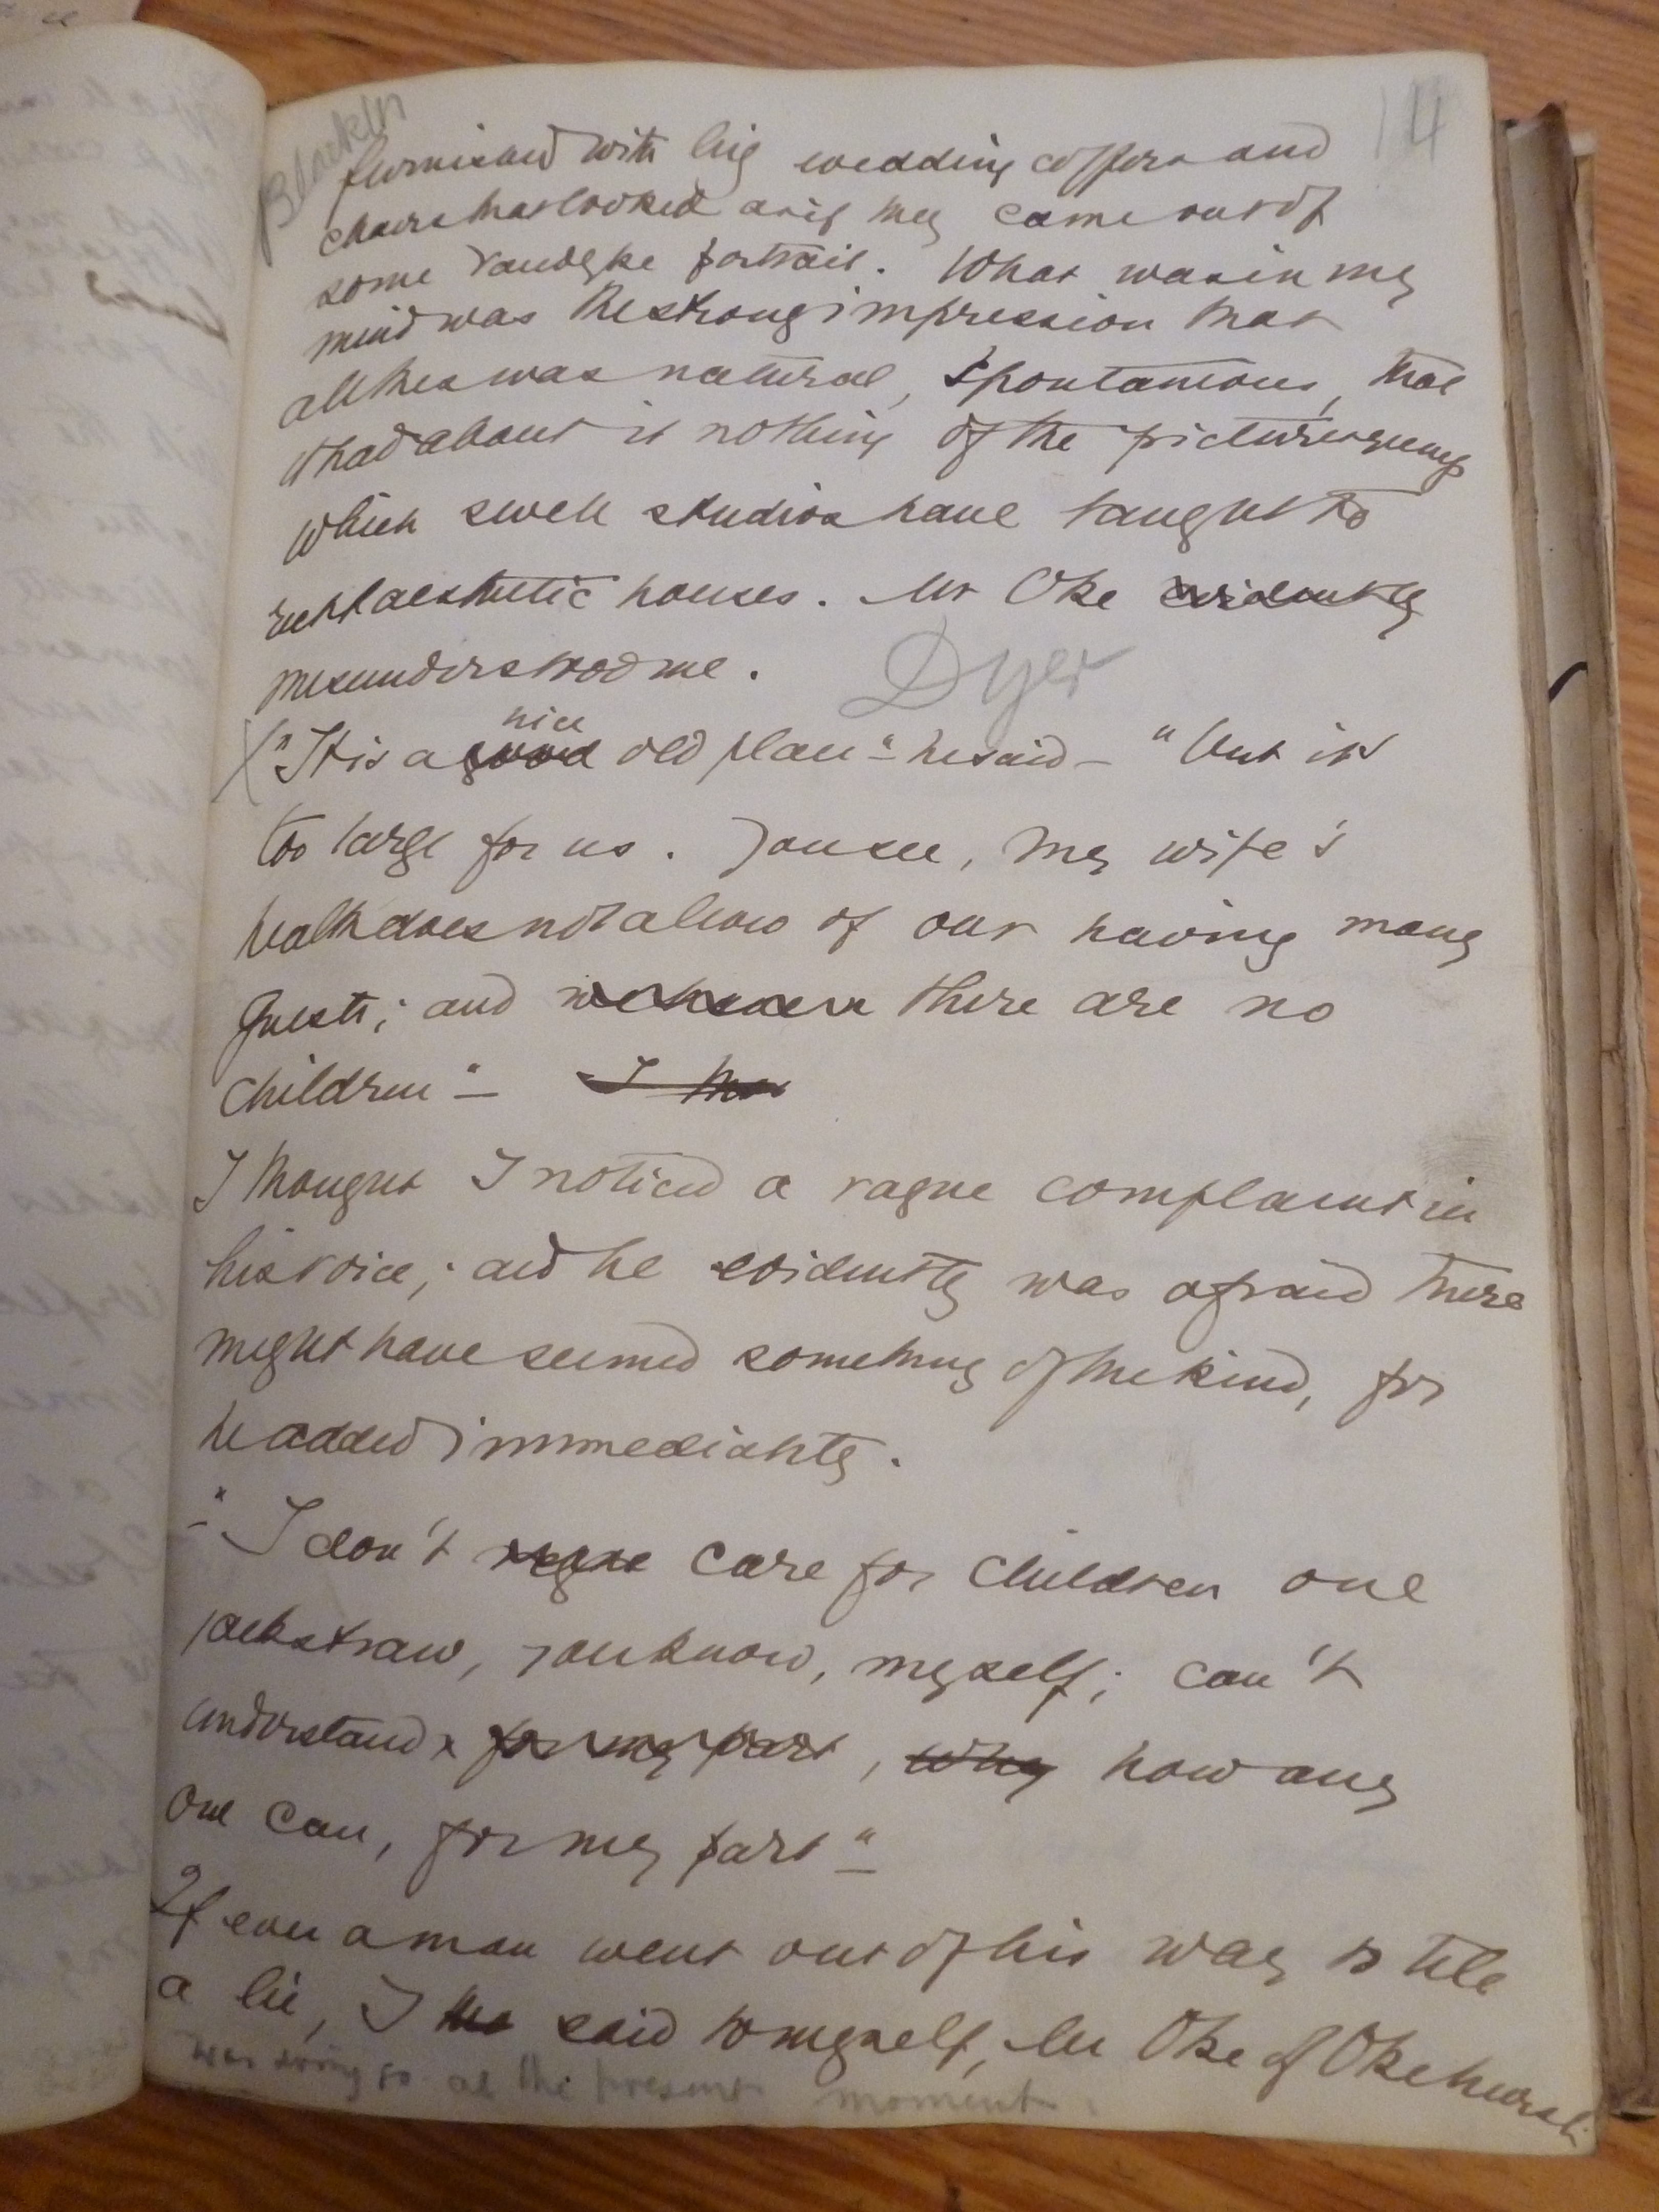 Blackin
14
furnished with big wedding coffers and
chairs that looked as if they came out of
some Vandyke portrait. What was in my
mind was the strong impression that
all this was natural, spontaneous, that
it had about it nothing of the picturesqueness
which swell studios have taught to
rich aesthetic houses. Mr Oke evidently
misunderstood me.
Dyer
nice
"It is a good old place" - he said - "but it's
too large for us. You see, my wife's
health does not allow of our having many
guests; and there are no
children" - I tho
I thought I noticed a vague complaint in
his voice; and he evidently was afraid there
might have seemed something of the kind, for
he added immediately.
- "I don't care for children one
jackstraw, you know, myself; can't
understand for my part, why how any
one can, for my part" -
If ever a man went out of his way to tell
a lie, I said to myself, Mr Oke of Okehurst
was doing so at the present moment.